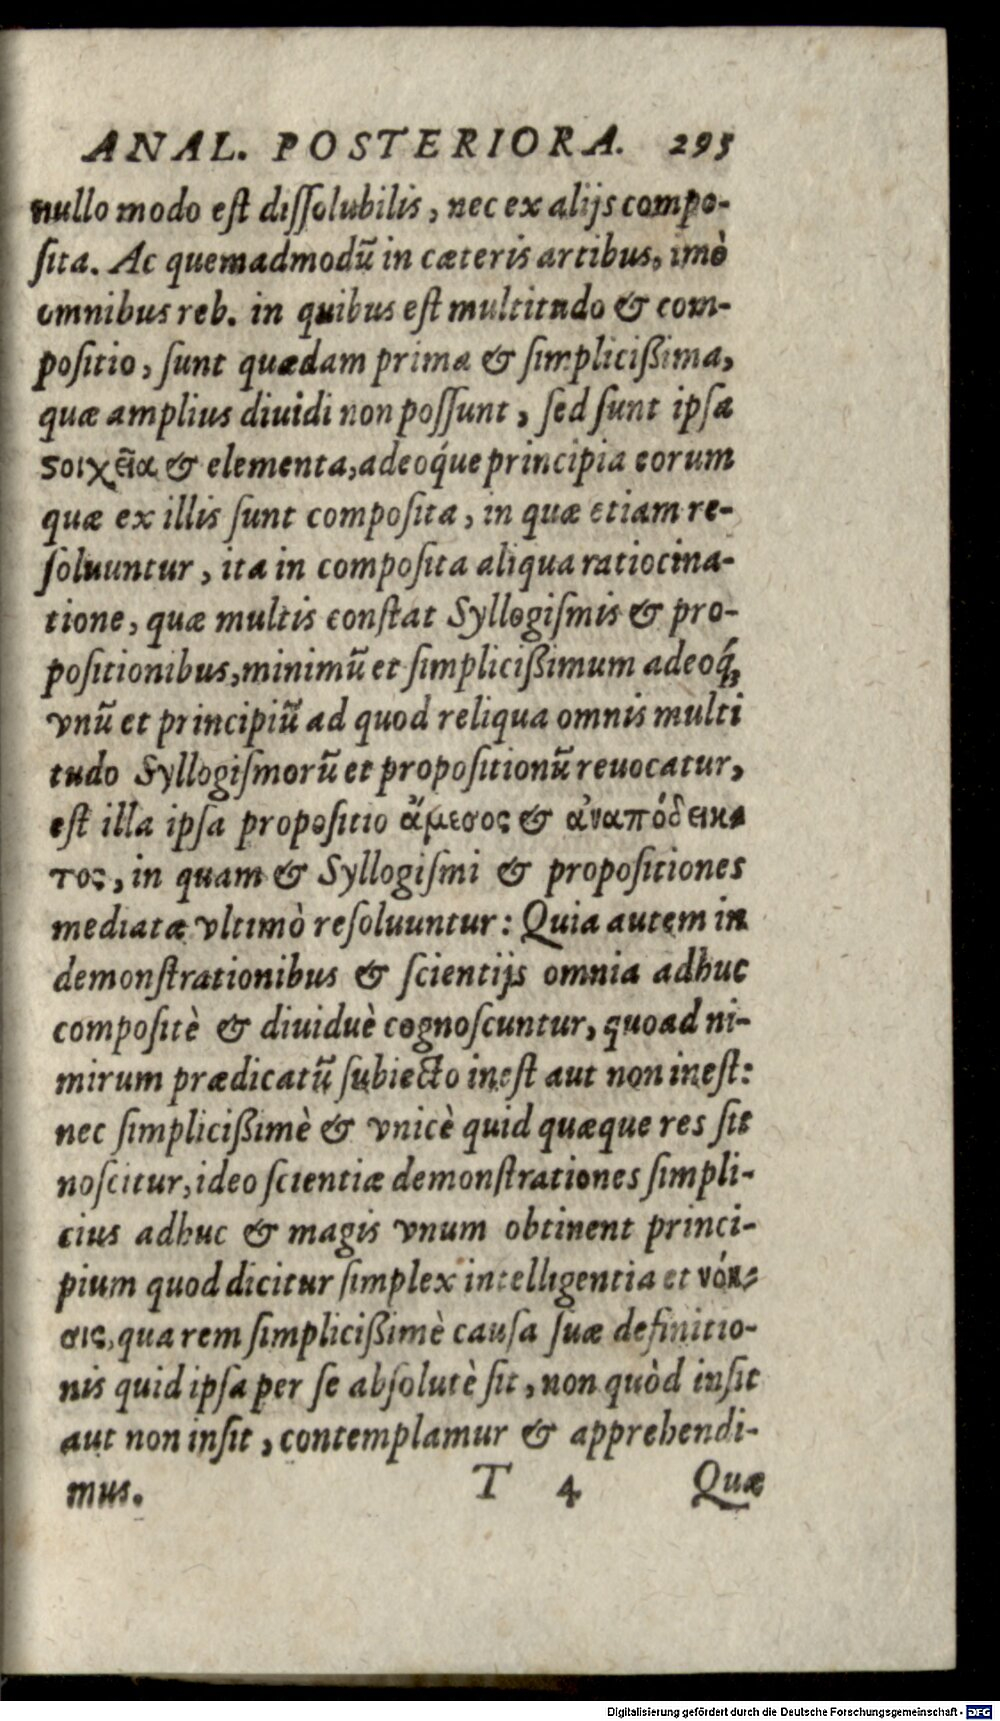 ANAL. POSTERIORA. 295
nullo modo est dissolubilis, nec ex alijs compo-
sita. Ac quemadmodũ in cæteris artibus, imò
omnibus reb. in quibus est multitudo & com-
positio, sunt quædam prima & simplicißima,
quæ amplius diuidi non possunt, sed sunt ipsa
ϛοιχεῖα & elementa, adeóque principia eorum
quæ ex illis sunt composita, in quæ etiam re-
soluuntur, ita in composita aliqua ratiocina-
tione, quæ multis constat Syllogismis & pro-
positionibus, minimũ et simplicißimum adeoq́;
vnũ et principiũ ad quod reliqua omnis multi
tudo Syllogismorũ et propositionũ reuocatur,
est illa ipsa propositio ἄμεσος & ἀναπόδεικ-
τος, in quam & Syllogismi & propositiones
mediatæ vltimò resoluuntur: Quia autem in
demonstrationibus & scientijs omnia adhuc
compositè & diuiduè cognoscuntur, quoad ni-
mirum prædicatũ subiecto inest aut non inest:
nec simplicißimè & vnicè quid quæque res sit
noscitur, ideo scientiæ demonstrationes simpli-
cius adhuc & magis vnum obtinent princi-
pium quod dicitur simplex intelligentia et νόη-
σις, qua rem simplicißimè causa suæ definitio-
nis quid ipsa per se absolutè sit, non quòd insit
aut non insit, contemplamur & apprehendi-
mus. T 4 Quæ
Digitalisierung gefördert durch die Deutsche Forschungsgemeinschaft - DFG